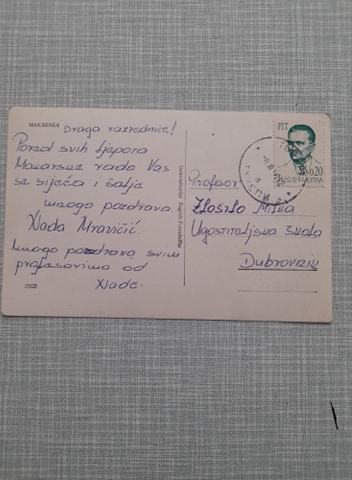 MAKARSKA
Draga razrednice!
Pored svih ljepota
Makarske rado Vas
se sijeća i šalje
mnogo pozdrava
Nada Mravičić
Mnogo pozdrava svim
profesorima od
Nade.
PTT
0,20
JUGOSLAVIJA
Profesor
Mitva
Ugostiteljska škola
Dubrovnik